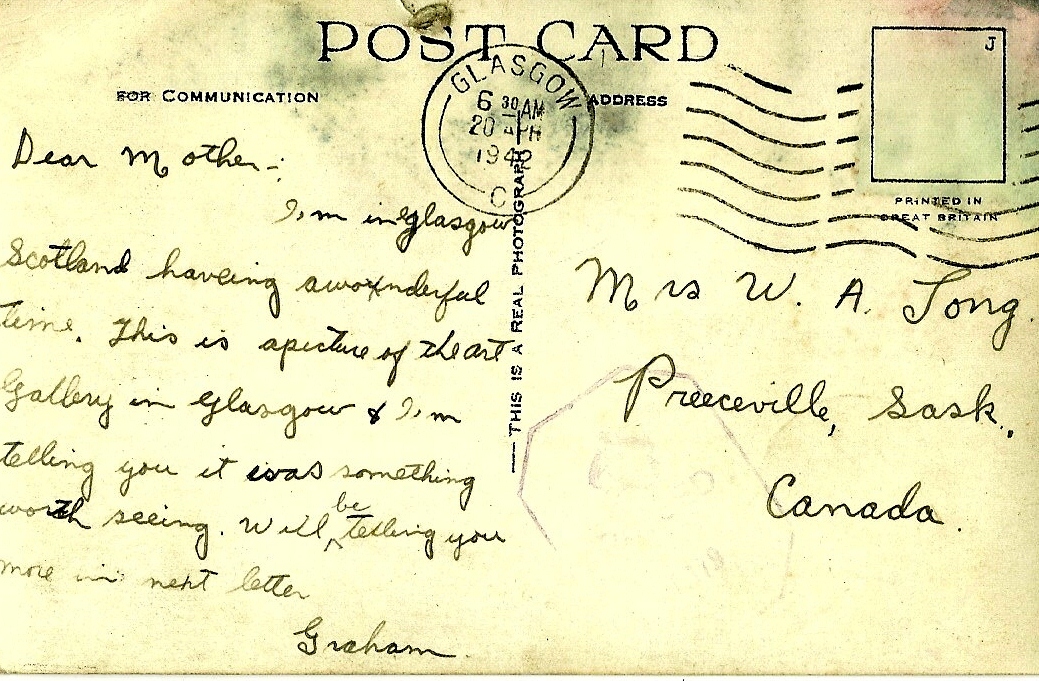 POST CARD
FOR COMMUNICATION
ADDRESS
GLASGOW
6 30 AM
20 APR
194
C
J
PRINTED IN
GREAT BRITAIN
THIS IS A REAL PHOTOGRAPH
Dear Mother-:
I'm in Glasgow
Scotland haveing a wonderful
time. This is a picture of the art
Gallery in Glasgow & I'm
telling you it was something
worth seeing. Will be telling you
more in next letter
Graham
Mrs W. A. Tong.
Preeceville, Sask.,
Canada.